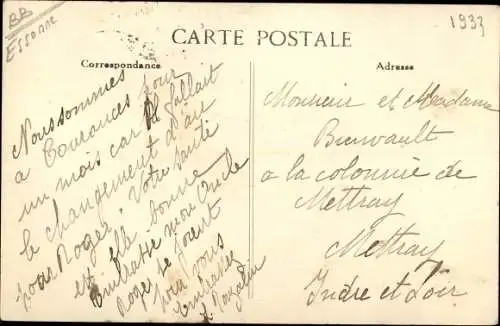 BB
Essonne
1933
CARTE POSTALE
Correspondance
Adresse
Nous sommes
a Courances pour
un mois car il fallait
le changement d'air
pour Roger. Votre santé
est elle bonne
Embrasse mon Oncle
Roger se joint
pour vous
Embrasser
Monsieur et Madame
a la colonnie de
Mettray
Mettray
Indre et Loir